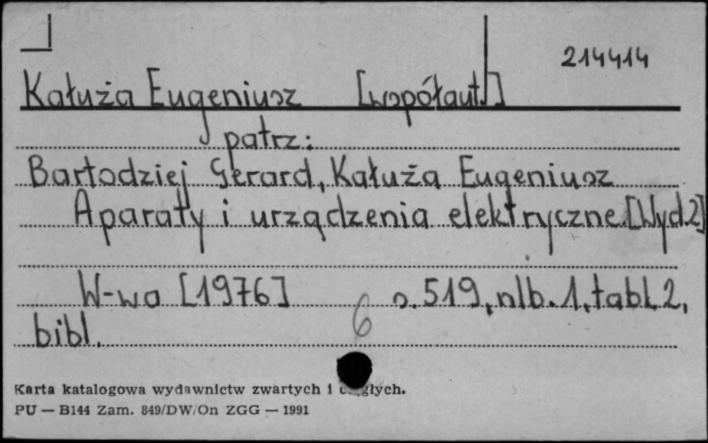 214414
Kałuża Eugeniusz [współaut.]
patrz:
Bartodziej Gerard, Kałuża Eugeniusz
Aparaty i urządzenia elektryczne.[Wyd.2]
W-wa [1976] s.519, nlb.1, tabl.2,
bibl.
6
Karta katalogowa wydawnictw zwartych i
PU — B144 Zam. 849/DW/On ZGG — 1991